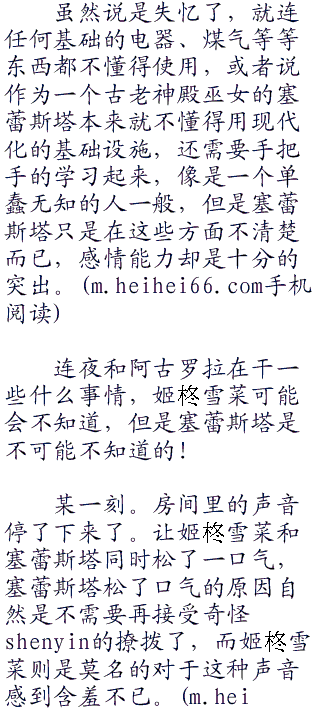 虽然说是失忆了，就连
任何基础的电器、煤气等等
东西都不懂得使用，或者说
作为一个古老神殿巫女的塞
蕾斯塔本来就不懂得用现代
化的基础设施，还需要手把
手的学习起来，像是一个单
蠢无知的人一般，但是塞蕾
斯塔只是在这些方面不清楚
而已，感情能力却是十分的
突出。(m.heihei66.com手机
阅读)
连夜和阿古罗拉在干一
些什么事情，姬柊雪菜可能
会不知道，但是塞蕾斯塔是
不可能不知道的!
某一刻。房间里的声音
停了下来了。让姬柊雪菜和
塞蕾斯塔同时松了一口气，
塞蕾斯塔松了口气的原因自
然是不需要再接受奇怪
shenyin的撩拨了，而姬柊雪
菜则是莫名的对于这种声音
感到含羞不已。(m.hei